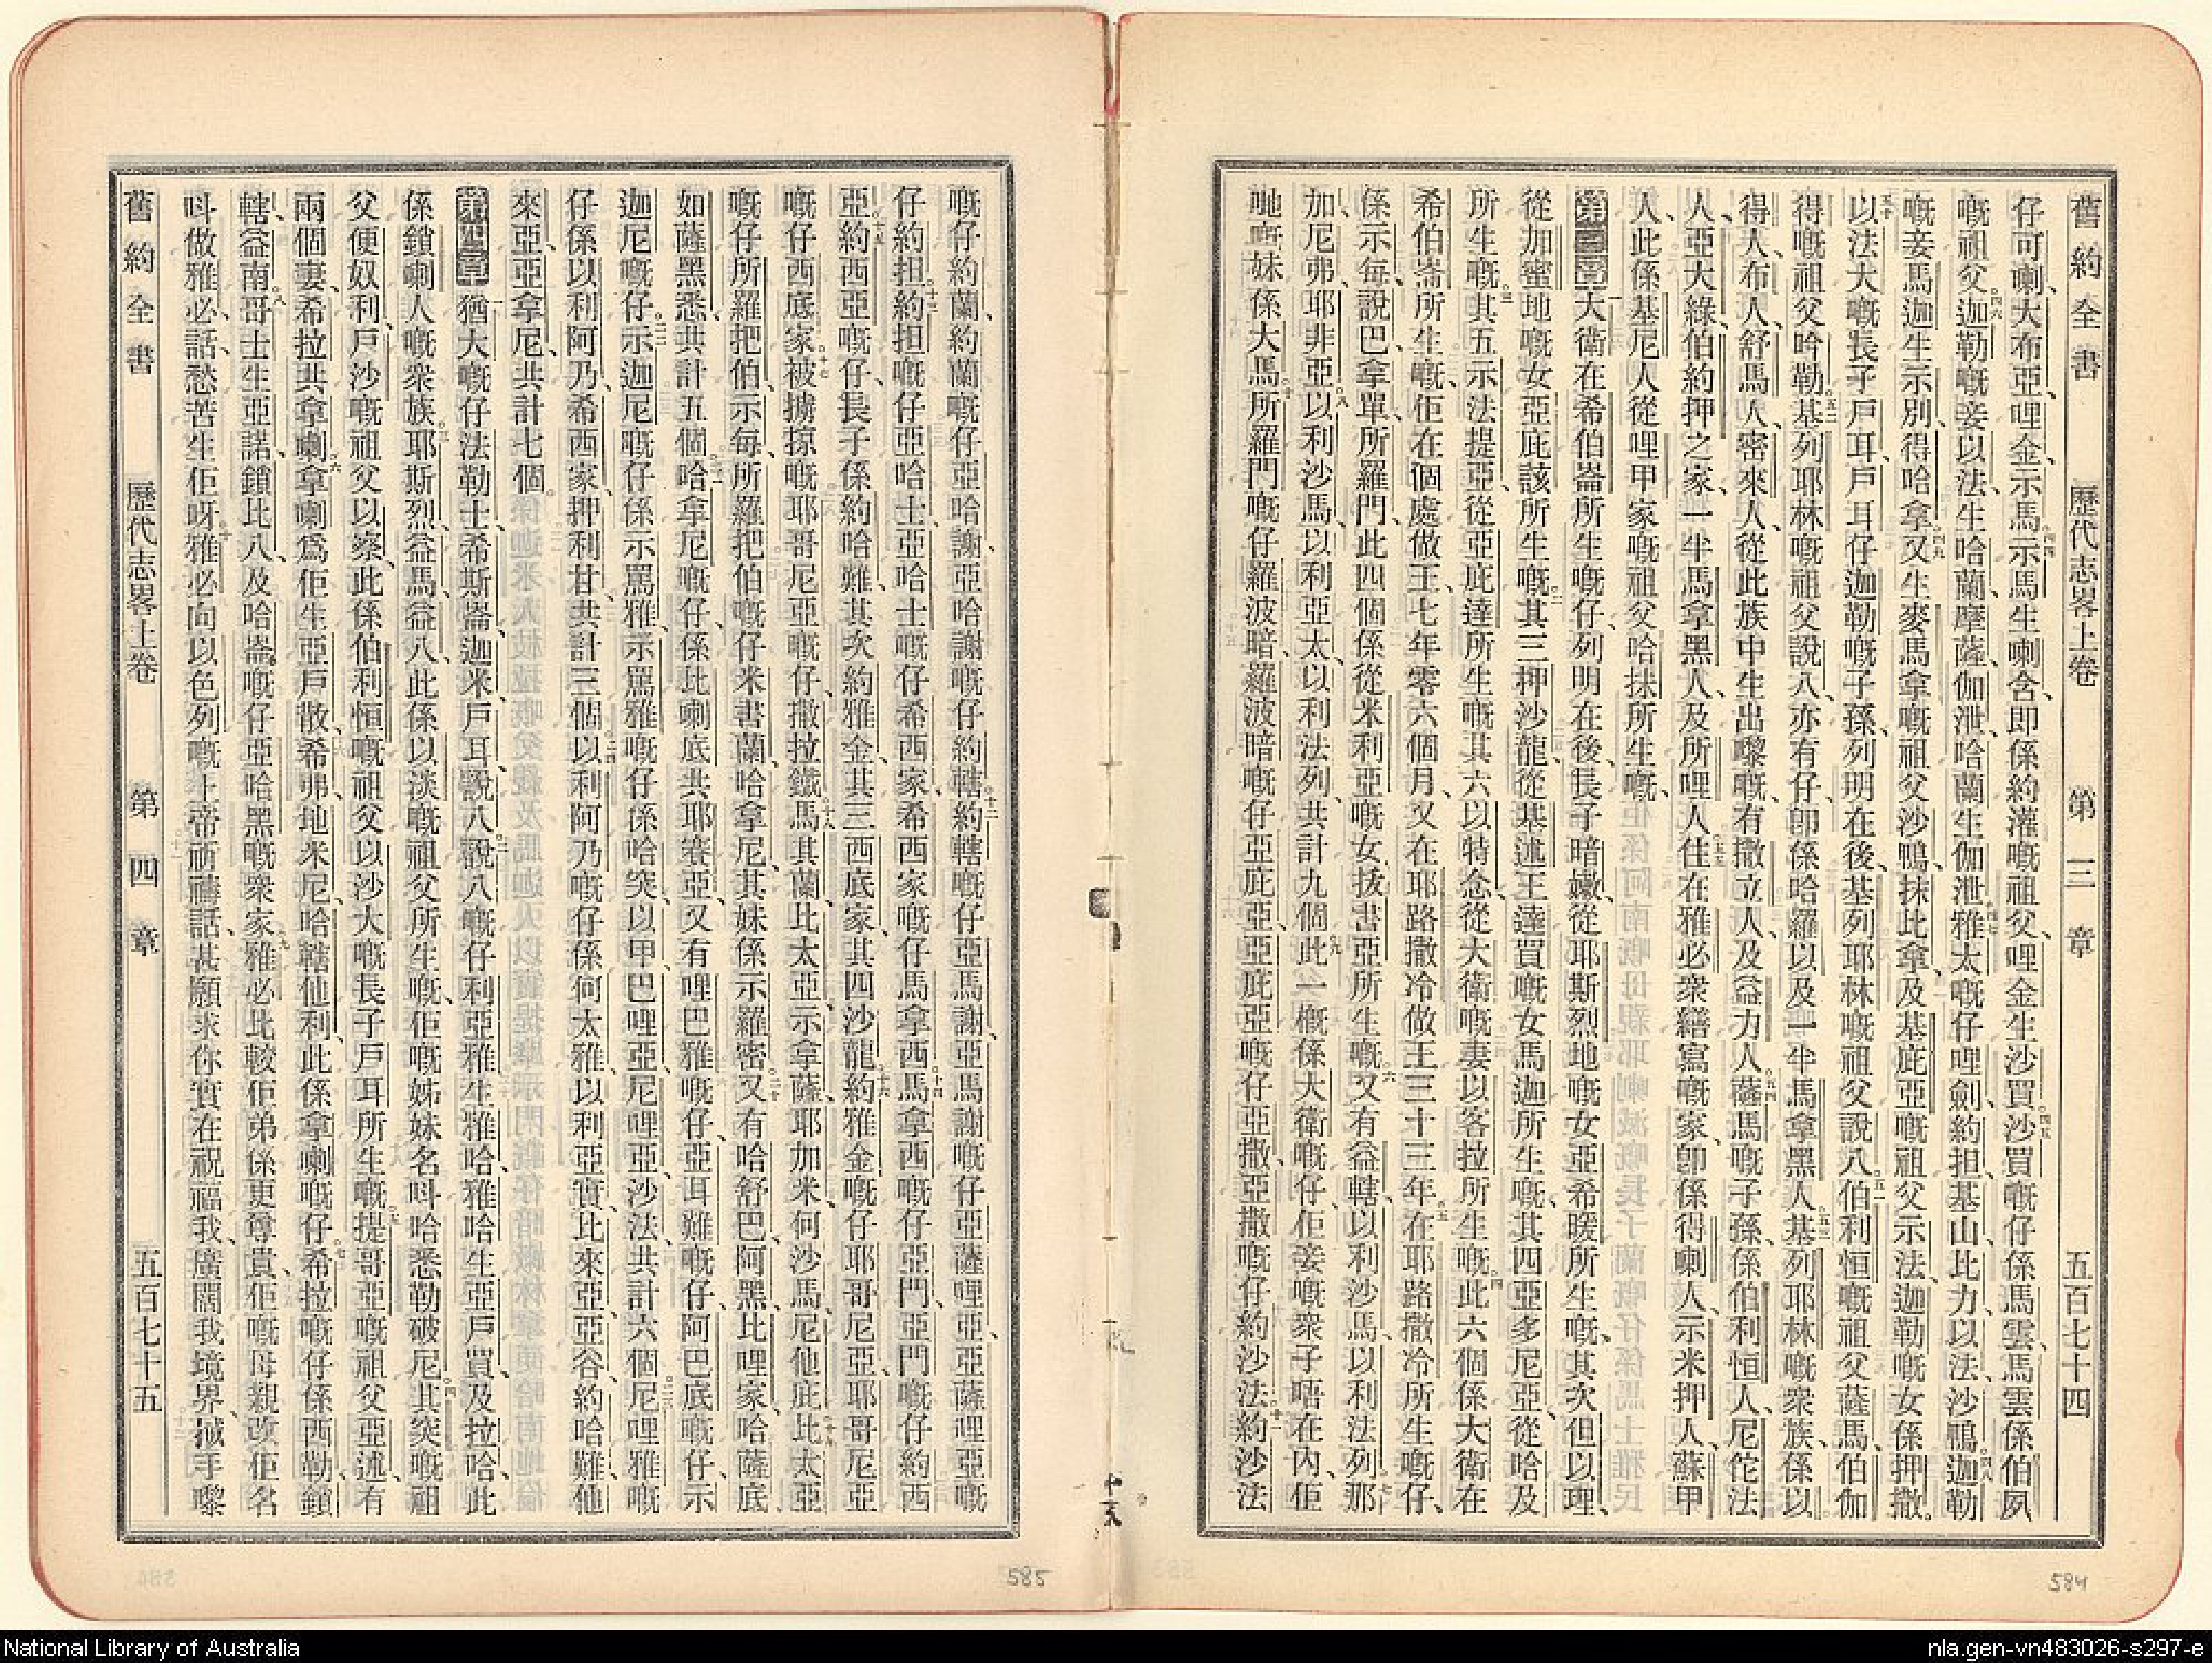 舊約全書 歷代志畧上卷 第三章 五百七十四
仔可喇、大布亞、哩金、示馬、示馬生喇含、即係約灌嘅祖父、哩金生沙買、沙買嘅仔係馬雲、馬雲係伯夙
嘅祖父、迦勒嘅妾以法、生哈蘭、摩薩、伽泄、哈蘭生伽泄、雅太嘅仔哩劍、約担、基山、比力、以法、沙鴨、迦勒
嘅妾馬迦生示別、得哈拿、又生麥馬拿嘅祖父沙鴨、抹比拿、及基庇亞嘅祖父示法、迦勒嘅女係押撒。
以法大嘅長子戶耳、戶耳仔迦勒嘅子孫、列明在後、基列耶林嘅祖父說八、伯利恒嘅祖父薩馬、伯伽
得嘅祖父哈勒、基列耶林嘅祖父說八、亦有仔、卽係哈羅以、及一半馬拿黑人、基列耶林嘅衆族、係以
得人、布人、舒馬人、密來人、從此族中生出嚟嘅、有撒立人、及益力人、薩馬嘅子孫、係伯利恒人、尼佗法
人、亞大綠伯約押之家、一半馬拿黑人、及所哩人、住在雅必衆繕寫嘅家、卽係得喇人、示米押人、蘇甲
人、此係基尼人、從哩甲家嘅祖父哈抹所生嘅、
第三章 大衛在希伯崙所生嘅仔、列明在後、長子暗嫩、從耶斯烈地嘅女亞希暖所生嘅、其次但以理、
從加蜜地嘅女亞庇該所生嘅、其三押沙龍、從基述王達買嘅女馬迦所生嘅、其四亞多尼亞、從哈及
所生嘅、其五示法提亞、從亞庇達所生嘅、其六以特念、從大衛嘅妻以客拉所生嘅、此六個係大衛在
希伯崙所生嘅、佢在個處做王七年零六個月、又在耶路撒冷做王三十三年、在耶路撒冷所生嘅仔、
係示每、說巴、拿單、所羅門、此四個係從米利亞嘅女拔書亞所生嘅、又有益轄、以利沙馬、以利法列、那
加、尼弗、耶非亞、以利沙馬、以利亞太、以利法列、共計九個、此一概係大衛嘅仔、佢妾嘅衆子唔在內、佢
哋嘅妹係大馬、所羅門嘅仔羅波暗、羅波暗嘅仔亞庇亞、亞庇亞嘅仔亞撒、亞撒嘅仔約沙法、約沙法
嘅仔約蘭、約蘭嘅仔亞哈謝、亞哈謝嘅仔約轄、約轄嘅仔亞馬謝、亞馬謝嘅仔亞薩哩亞、亞薩哩亞嘅
仔約担、約担嘅仔亞哈士、亞哈士嘅仔希西家、希西家嘅仔馬拿西、馬拿西嘅仔亞門、亞門嘅仔約西
亞、約西亞嘅仔、長子係約哈難、其次約雅金、其三西底家、其四沙龍、約雅金嘅仔耶哥尼亞、耶哥尼亞
嘅仔西底家、被擄掠嘅耶哥尼亞嘅仔、撒拉鐵、馬其蘭、比太亞、示拿薩、耶加米、何沙馬、尼他庇、比太亞
嘅仔、所羅把伯、示每、所羅把伯嘅仔、米書蘭、哈拿尼、其妹係示羅密、又有哈舒巴、阿黑、比哩家、哈薩底、
如薩黑悉、共計五個、哈拿尼嘅仔、係比喇底、共耶賽亞、又有哩巴雅嘅仔、亞耳難嘅仔、阿巴底嘅仔、示
迦尼嘅仔、示迦尼嘅仔係示罵雅、示罵雅嘅仔係哈突、以甲、巴哩亞、尼哩亞、沙法、共計六個、尼哩雅嘅
仔係以利阿乃、希西家、押利甘、共計三個、以利阿乃嘅仔係何太雅、以利亞實、比來亞、亞谷、約哈難、他
來亞、亞拿尼、共計七個。
第四章 猶大嘅仔法勒士、希斯崙、迦米、戶耳、說八、說八嘅仔利亞雅生雅哈、雅哈生亞戶買、及拉哈、此
係鎖喇人嘅衆族、耶斯烈、益馬、益八、此係以淡嘅祖父所生嘅、佢嘅姊妹名呌哈悉勒破尼、其突嘅祖
父便奴利、戶沙嘅祖父以察、此係伯利恒嘅祖父以沙大嘅長子戶耳所生嘅、提哥亞嘅祖父亞述、有
兩個妻、希拉共拿喇、拿喇爲佢生亞戶散、希弗、地米尼、哈轄他利、此係拿喇嘅仔、希拉嘅仔係西勒、鎖
轄、益南、哥士生亞諾、鎖比八、及哈崙嘅仔亞哈黑嘅衆家、雅必比較佢弟係更尊貴、佢嘅母親改佢名
呌做雅必、話、愁苦生佢呀、雅必向以色列嘅上帝祈禱話、甚願求你實在祝福我、廣闊我境界、搣手嚟
舊約全書 歷代志畧上卷 第四章 五百七十五
584
585
National Library of Australia
nla.gen-vn483026-s297-e